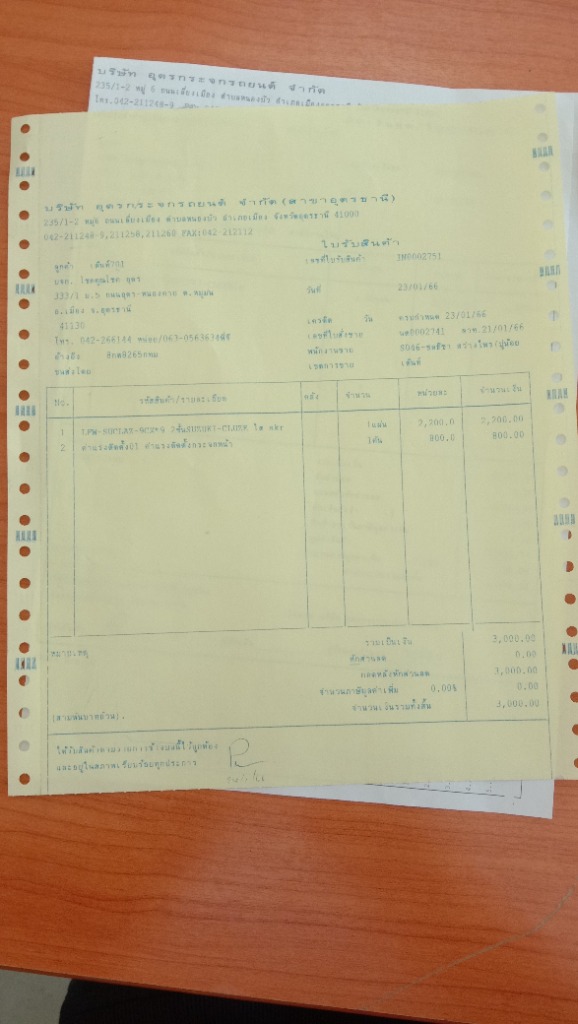 บริษัท อุดรกระจกรถยนต์ จำกัด
235/1-2 หมู่ 6 ถนนเลี่ยงเมือง ตำบลหนองบัว
โทร.042-211248-9
บริษัท อุดรกระจกรถยนต์ จำกัด(สาขาอุดรธานี)
235/1-2 หมู่6 ถนนเลี่ยงเมือง ตำบลหนองบัว อำเภอเมือง จังหวัดอุดรธานี 41000
042-211248-9,211258,211268 FAX:042-212112
ใบรับสินค้า
ลูกค้า :เต้นท์701
เลขที่ใบรับสินค้า IM0002751
บจก. โชคคูณโชค อุดร
333/1 ม.5 ถนนอุดร-หนองคาย ต.หมูม่น
วันที่ 23/01/66
อ.เมือง จ.อุดรธานี
41130
เครดิต วัน ครบกำหนด 23/01/66
โทร. 042-266144 หน่อย/063-0563634
เลขที่ใบสั่งขาย นค0002741 ลวท.21/01/66
อ้างถึง
พนักงานขาย
ขนส่งโดย
เขตการขาย เต้นท์
No. รหัสสินค้า/รายละเอียด คลัง จำนวน หน่วยละ จำนวนเงิน
1 2ชั้นSUZUKI-CIAZ 1แผ่น 2,200.0 2,200.00
2 ค่าแรงติดตั้ง01 ค่าแรงติดตั้งกระจกหน้า 1คัน 800.0 800.00
หมายเหตุ
รวมเป็นเงิน 3,000.00
หักส่วนลด 0.00
ยอดหลังหักส่วนลด 3,000.00
จำนวนภาษีมูลค่าเพิ่ม 0.00% 0.00
(สามพันบาทถ้วน). จำนวนเงินรวมทั้งสิ้น 3,000.00
ได้รับสินค้าตามรายการข้างบนนี้ไว้ถูกต้อง
และอยู่ในสภาพเรียบร้อยทุกประการ